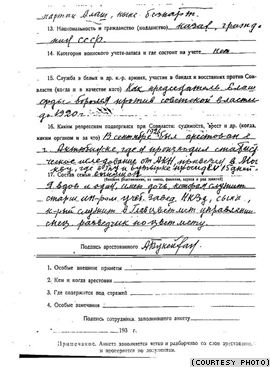 партии Алаш, ныне беспарт.
13. Национальность и гражданство (подданство) казах, гражд-
мия СССР.
14. Категория воинского учета-запаса и где состоит на учете нет
15. Служба в белых и др. к.-р. армиях, участие в бандах и восстаниях против Сов-
власти (когда и в качестве кого) Как председатель Алаш
орды боролся против советской власти
до 1920 г.
16. Каким репрессиям подвергался при Соввласти: судимость, арест и др. (когда,
каким органом и за что) В сентябре 1926 был арестован в
г. Актюбинске, где я производил статистич
ческое исследование от АКН, привезли в Мос
кву, где в Бутырке просидел 15 дней.
17. Состав семьи
Я вдов и один, имею дочь, которая служит
старш.
к-рый служит в Главцветмет управлении
разведки по цветмету.
Подпись арестованного АБукейхан
1. Особые внешние приметы
2. Кем и когда арестован
3. Где содержится под стражей
4. Особые замечания
Подпись сотрудника, заполнившего анкету
193 г.
Примечание. Анкета заполняется четко и разборчиво со слов арестованного
и проверяется по документам.
(COURTESY PHOTO)